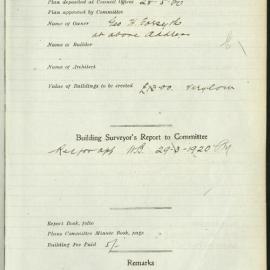 Plan deposited at Council Offices
Plan approved by Committee
Name of Owner Geo H Forsyth
at above Address
Name of Builder
Name of Architect
Value of Buildings to be erected
Building Surveyor's Report to Committee
29-3-1920
Report Book, folio
Plans Committee Minute Book, page
Building Fee Paid 5/-
Remarks